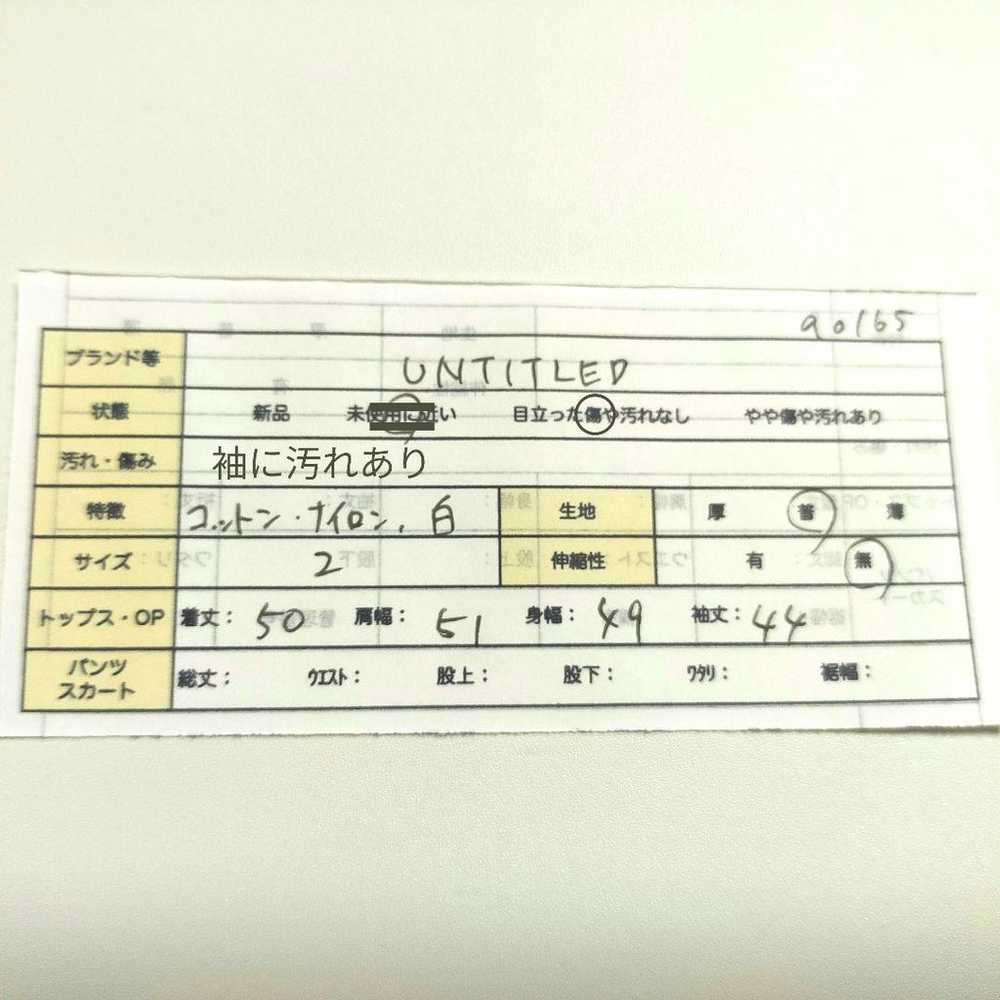 90165
ブランド等 UNTITLED
状態 新品 未使用に近い 目立った傷や汚れなし やや傷や汚れあり
汚れ・傷み 袖に汚れあり
特徴 コットン・ナイロン、白 生地 厚 普 薄
サイズ 2 伸縮性 有 無
トップス・OP 着丈: 50 肩幅: 51 身幅: 49 袖丈: 44
パンツ
スカート 総丈: ウエスト: 股上: 股下: ワタリ: 裾幅: